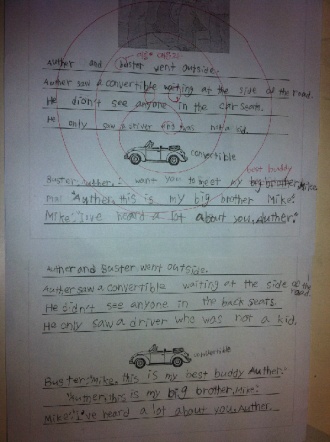 Auther and Buster went outside.
Auther saw a convertible waiting at the side of the road.
He didn't see anyone in the car seats.
He only saw a driver was not a kid.
convertible
best buddy
Buster: Auther, I want you to meet my big brother, Mike
"Auther, this is my big brother Mike."
Mike: "I've heard a lot about you, Auther."
Auther and Buster went outside.
Auther saw a convertible waiting at the side of the road.
He didn't see anyone in the back seats.
He only saw a driver who was not a kid.
convertible
Buster: "Mike, this is my best buddy Auther."
"Auther, this is my big brother, Mike."
Mike: "I've heard a lot about you, Auther.